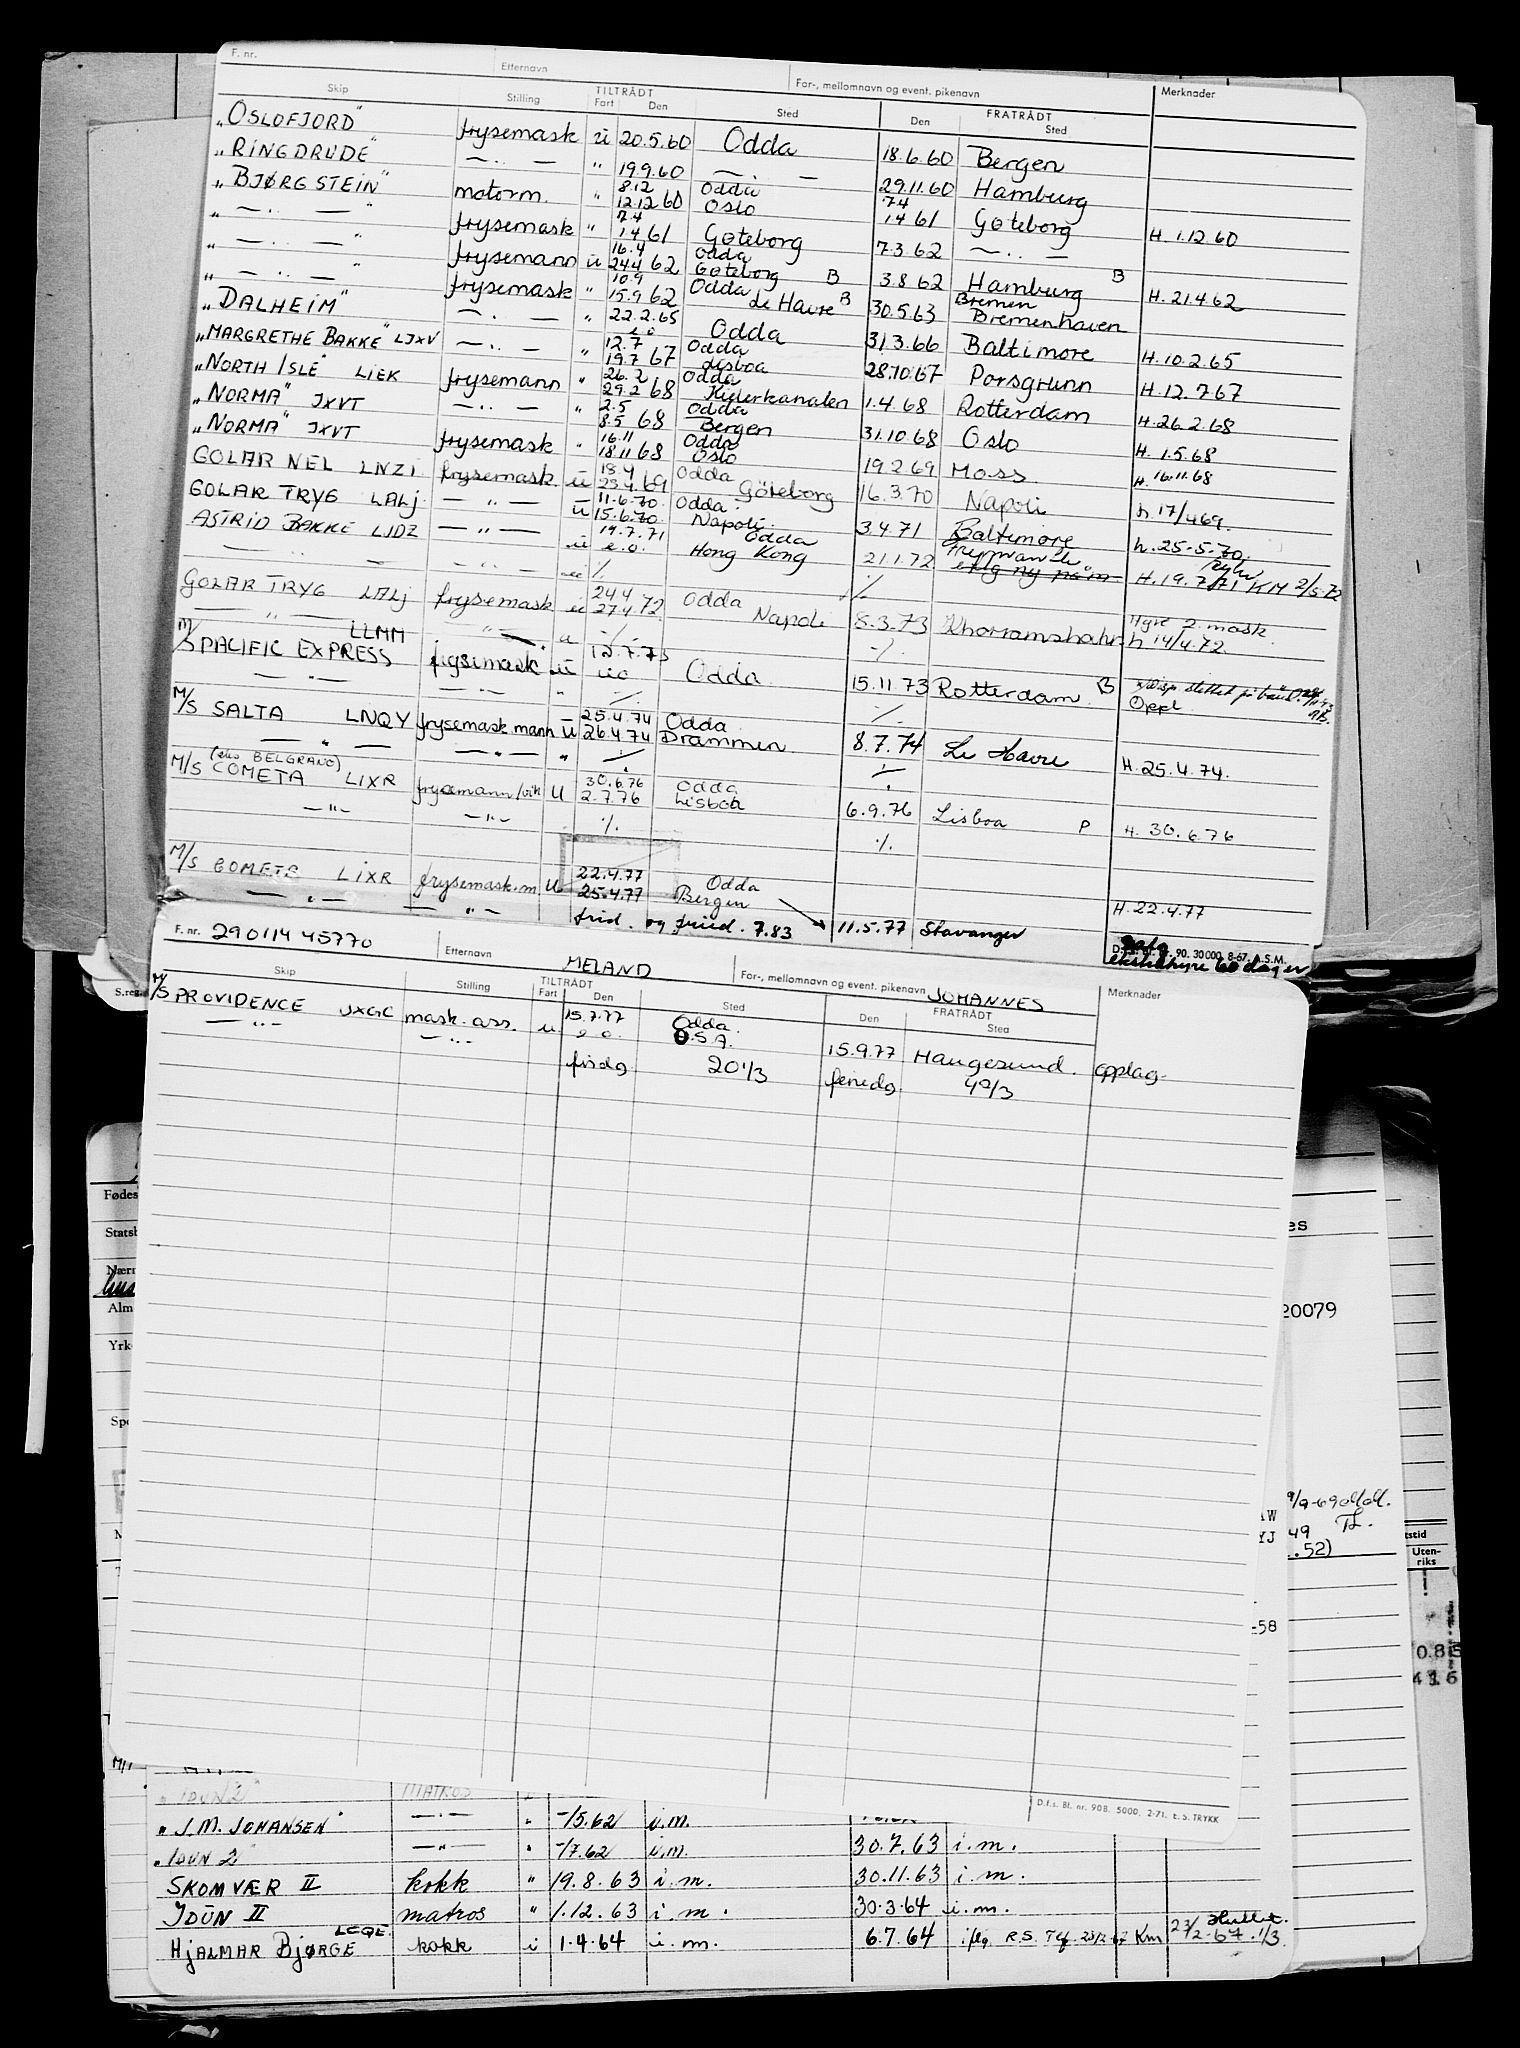 F. nr. Etternavn For-, mellomnavn og event. pikenavn Merknader
Skip Stilling TILTRÅDT Fart Den Sted Den FRATRÅDT Sted
„OSLOFJORD" frysemask ü 20.5.60 Odda 18.6.60 Bergen
„RINGDRUDE" — ·· — " 19.9.60 — · — 29.11.60 Hamburg
„BJØRGSTEIN" motorm. " 8.12 12.12 60 Odda Oslo 7.4 14 61 Göteborg H. 1.12.60
„ — ·· — " frysemask " 7.4 14 61 Göteborg 7.3 62 — ·· —
„ — ·· — " frysemann ü 16.4 24.4 62 Odda Göteborg B 3.8 62 Hamburg B H. 21.4.62
„ — ·· — " frysemask " 10.9 15.9 62 Odda Le Havre B 30.5.63 Bremen Bremenhaven
„DALHEIM" — ·· — " 22.2.65 e.o Odda 31.3.66 Baltimore H. 10.2.65
„MARGRETHE BAKKE" LJXV — ·· — " 12.7 19.7 67 Odda Lisboa 28.10.67 Porsgrunn H. 12.7.67
„NORTH ISLE" LIEK frysemann " 26.2 29.2 68 Odda Kielerkanalen 1.4.68 Rotterdam H. 26.2.68
„NORMA" JXVT — ·· — " 2.5 8.5 68 Odda Bergen 31.10.68 Oslo H. 1.5.68
„NORMA" JXVT frysemask " 16.11 18.11 68 Odda Oslo 19.2 69 Moss H. 16.11.68
GOLAR NEL LNZI frysemask ü 18.4 23.4.69 Odda Göteborg 16.3.70 Napoli h. 17/4 69.
GOLAR TRYG LALJ — " — ü 11.6.70. 15.6.70. Odda Napoli 3.4.71 Baltimore h. 25-5-70.
ASTRID BAKKE LJDZ — " — ü 19.7.71 e.o. Odda Hong Kong 21.1.72 H. 19.7.71 KM 2/5.72
— " — — " — ü ·/. ·/.
GOLAR TRYG LALJ frysemask ü 24.4 27.4.72 Odda Napoli 8.3.73 Khorramshahr Hyre 2. mask. h 14/4.72.
— " — " a ·/. ·/.
M/S PACIFIC EXPRESS LLMM frysemask ü 12.7.73 e.o Odda 15.11.73 Rotterdam B Oppl.
— " — — " — " ·/. ·/.
M/S SALTA LNQY frysemask mann ü 25.4.74 26.4.74 Odda Drammen 8.7.74 Le Havre H. 25.4.74.
— " — — " — " ·/. ·/.
M/S COMETA (eks BELGRANO) LIXR frysemann/vik U 30.6.76 2.7.76 Odda Lisboa 6.9.76 Lisboa P H. 30.6.76
— " — — " — ·/. ·/.
M/S COMETA LIXR frysemask.m. U 22.4.77 25.4.77 Odda Bergen 11.5.77 Stavanger H. 22.4.77
— " — — " — frid. og fried. 7.83 ekstrahyre 60 dager
90. 30000. 8-67. A.S.M.
F. nr. 290114 45770 Etternavn MELAND For-, mellomnavn og event. pikenavn JOHANNES Merknader
S.reg.
Skip Stilling TILTRÅDT Fart Den Sted Den FRATRÅDT Sted
M/S PROVIDENCE JXGC mask. ass. u 15.7.77 e.o. Odda. U.S.A. 15.9.77 Haugesund. opplag.
— " — — " — frida 20 1/3 ferieda 4 2/3
Fødes
Statsb
Nærm
Alm
Yrk
Spe
es
20079
9/9-69
AW
YJ 49
..52)
tstid
Uten-
riks
-58
0.8
4 1 6
D.f.s. Bl. nr. 908. 5000. 2-71. E.S. TRYKK
„IDUN 2" MATROS
„J.M. JOHANSEN" — " — " -/5.62 i.m.
„IDUN 2" — " — " -/7.62 i.m. 30.7.63 i.m.
SKOMVÆR II kokk " 19.8.63 i.m. 30.11.63 i.m.
IDUN II matros " 1.12.63 i.m. 30.3.64 i.m.
HJALMAR BJØRGE LCQE kokk i 1.4.64 i.m. 6.7.64 iflg R.S. Tlf. 23/2-67 Km 23/2-67. 1/3.